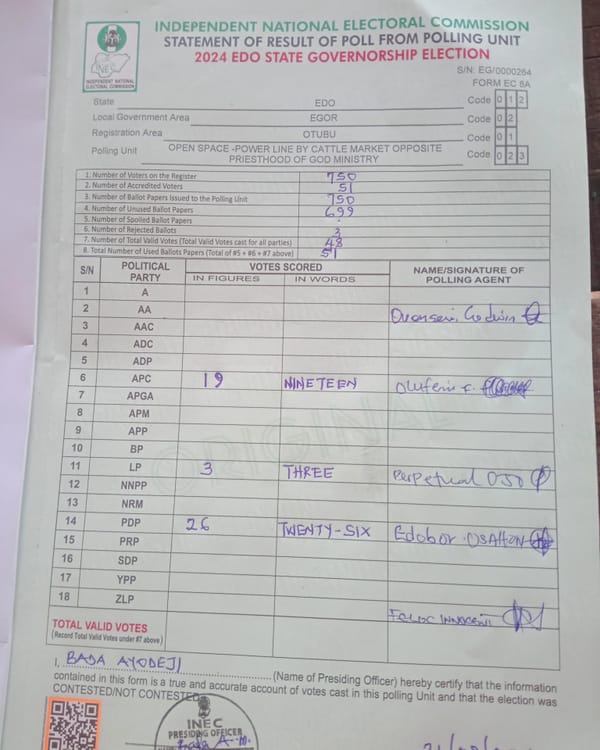 INDEPENDENT NATIONAL ELECTORAL COMMISSION
STATEMENT OF RESULT OF POLL FROM POLLING UNIT
2024 EDO STATE GOVERNORSHIP ELECTION
INEC
INDEPENDENT NATIONAL ELECTORAL COMMISSION
S/N: EG/0000264
FORM EC 8A
State EDO Code 0 1 2
Local Government Area EGOR Code 0 2
Registration Area OTUBU Code 0 1
Polling Unit OPEN SPACE -POWER LINE BY CATTLE MARKET OPPOSITE PRIESTHOOD OF GOD MINISTRY Code 0 2 3
1. Number of Voters on the Register 750
2. Number of Accredited Voters 51
3. Number of Ballot Papers Issued to the Polling Unit 750
4. Number of Unused Ballot Papers 699
5. Number of Spoiled Ballot Papers
6. Number of Rejected Ballots 3
7. Number of Total Valid Votes (Total Valid Votes cast for all parties) 48
8. Total Number of Used Ballots Papers (Total of #5 + #6 + #7 above) 51
S/N POLITICAL PARTY VOTES SCORED NAME/SIGNATURE OF POLLING AGENT
IN FIGURES IN WORDS
1 A
2 AA Godwin
3 AAC
4 ADC
5 ADP
6 APC 19 NINETEEN
7 APGA
8 APM
9 APP
10 BP
11 LP 3 THREE Perpetual OJO
12 NNPP
13 NRM
14 PDP 26 TWENTY-SIX Edobor
15 PRP
16 SDP
17 YPP
18 ZLP INNOCENT
ORIGINAL
TOTAL VALID VOTES
(Record Total Valid Votes under #7 above)
I, BADA AYODEJI (Name of Presiding Officer) hereby certify that the information
contained in this form is a true and accurate account of votes cast in this polling Unit and that the election was
CONTESTED/NOT CONTESTED
INEC
PRESIDING OFFICER
Bada A.M.